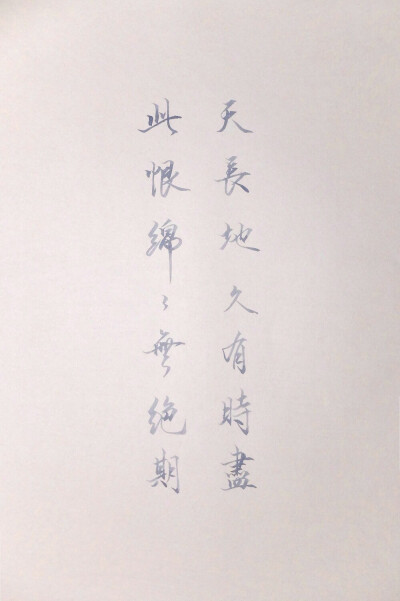 天長地久有時盡
此恨綿〻無絕期